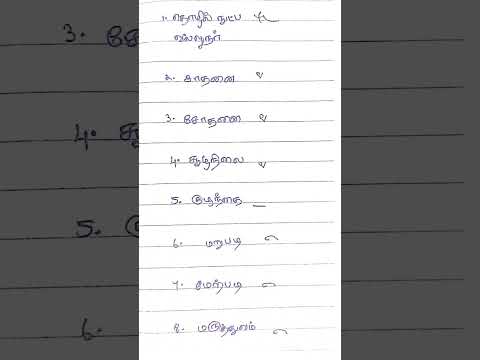 1. தொழில் நுட்ப
வல்லுநர்
2. சாதனை
3. சோதனை
4. சூழ்நிலை
5. குழந்தை
6. மறுபடி
7. மேற்படி
8. மருத்துவம்